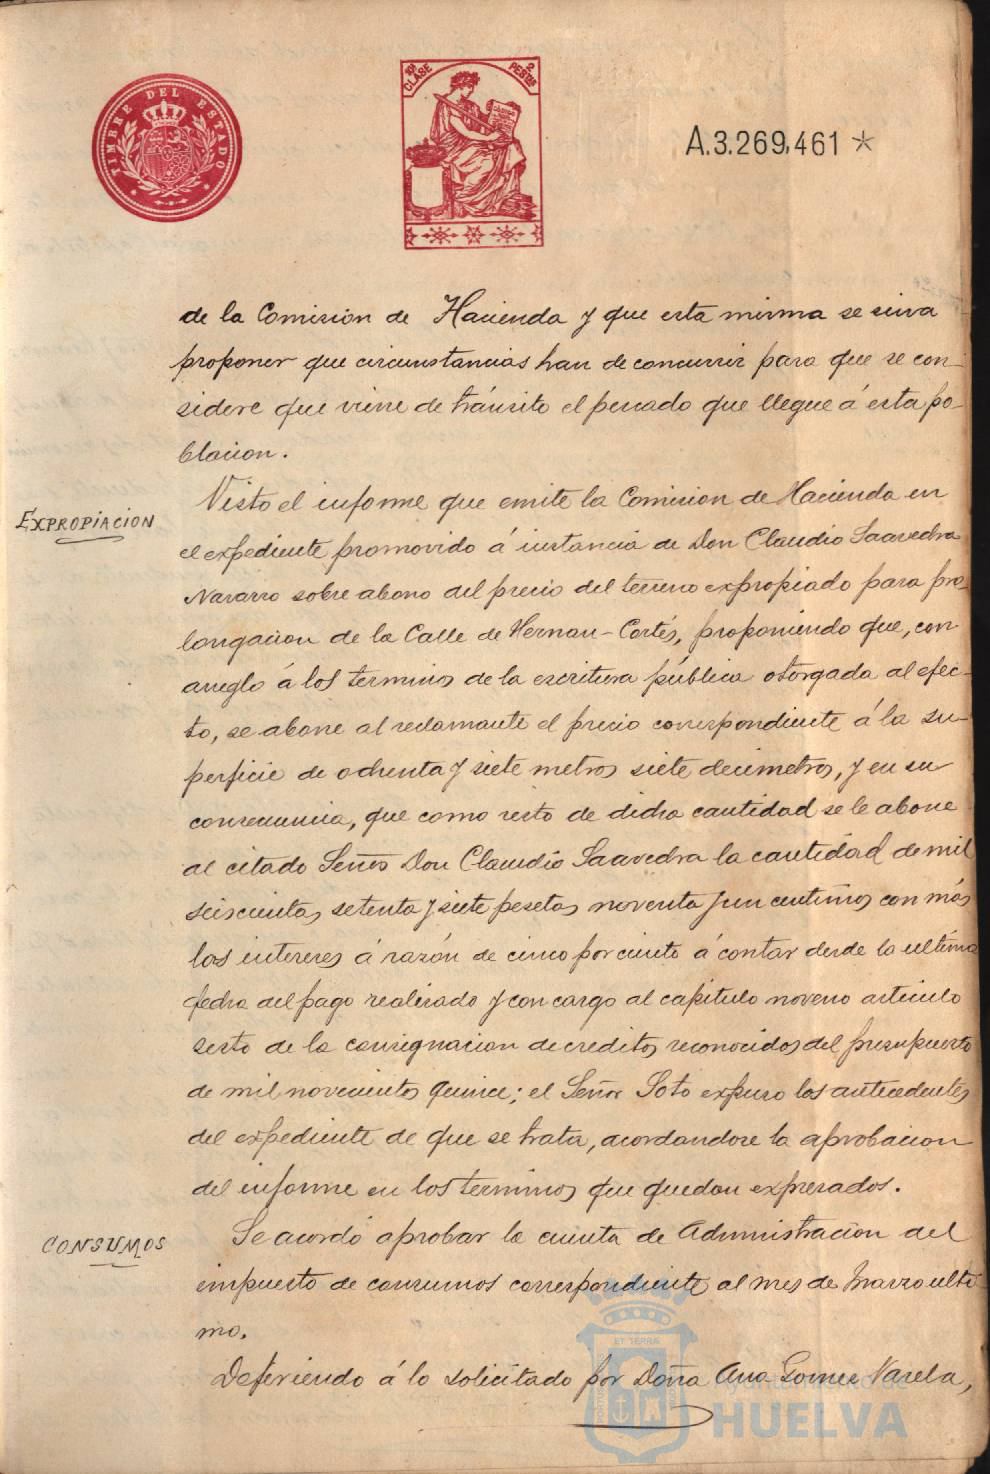 TIMBRE DEL ESTADO
10ª CLASE
2 PESETAS
A.3.269,461 *
de la Comision de Hacienda y que esta misma se sirva
proponer que circunstancias han de concurrir para que se con-
sidere que viene de tránsito el pescado que llegue á esta po-
blacion.
Visto el informe que emite la Comision de Hacienda en
EXPROPIACION
el expediente promovido á instancia de Don Claudio Saavedra
Navarro sobre abono del precio del terreno expropiado para pro-
longacion de la Calle de Hernan-Cortés, proponiendo que, con
arreglo á los terminos de la escritura pública otorgada al efec-
to, se abone al reclamante el precio correspondiente á la su-
perficie de ochenta y siete metros siete decimetros, y en su
consecuencia, que como resto de dicha cantidad se le abone
al citado Señor Don Claudio Saavedra la cantidad de mil
seiscientas setenta y siete pesetas noventa y un centimos con más
los intereses á razón de cinco por ciento á contar desde la ultima
fecha del pago realisado y con cargo al capitulo noveno articulo
sesto de la consignacion de creditos reconocidos del presupuesto
de mil novecientos quince; el Señor Soto expuso los antecedentes
del expediente de que se trata, acordandose la aprobacion
del informe en los terminos que quedan expresados.
CONSUMOS
Se acordó aprobar la cuenta de Administracion del
impuesto de consumos correspondiente al mes de Marzo ulti-
mo.
Defiriendo á lo solicitado por Doña Ana Gomez Varela,
ET TERRA
Ayuntamiento de
HUELVA